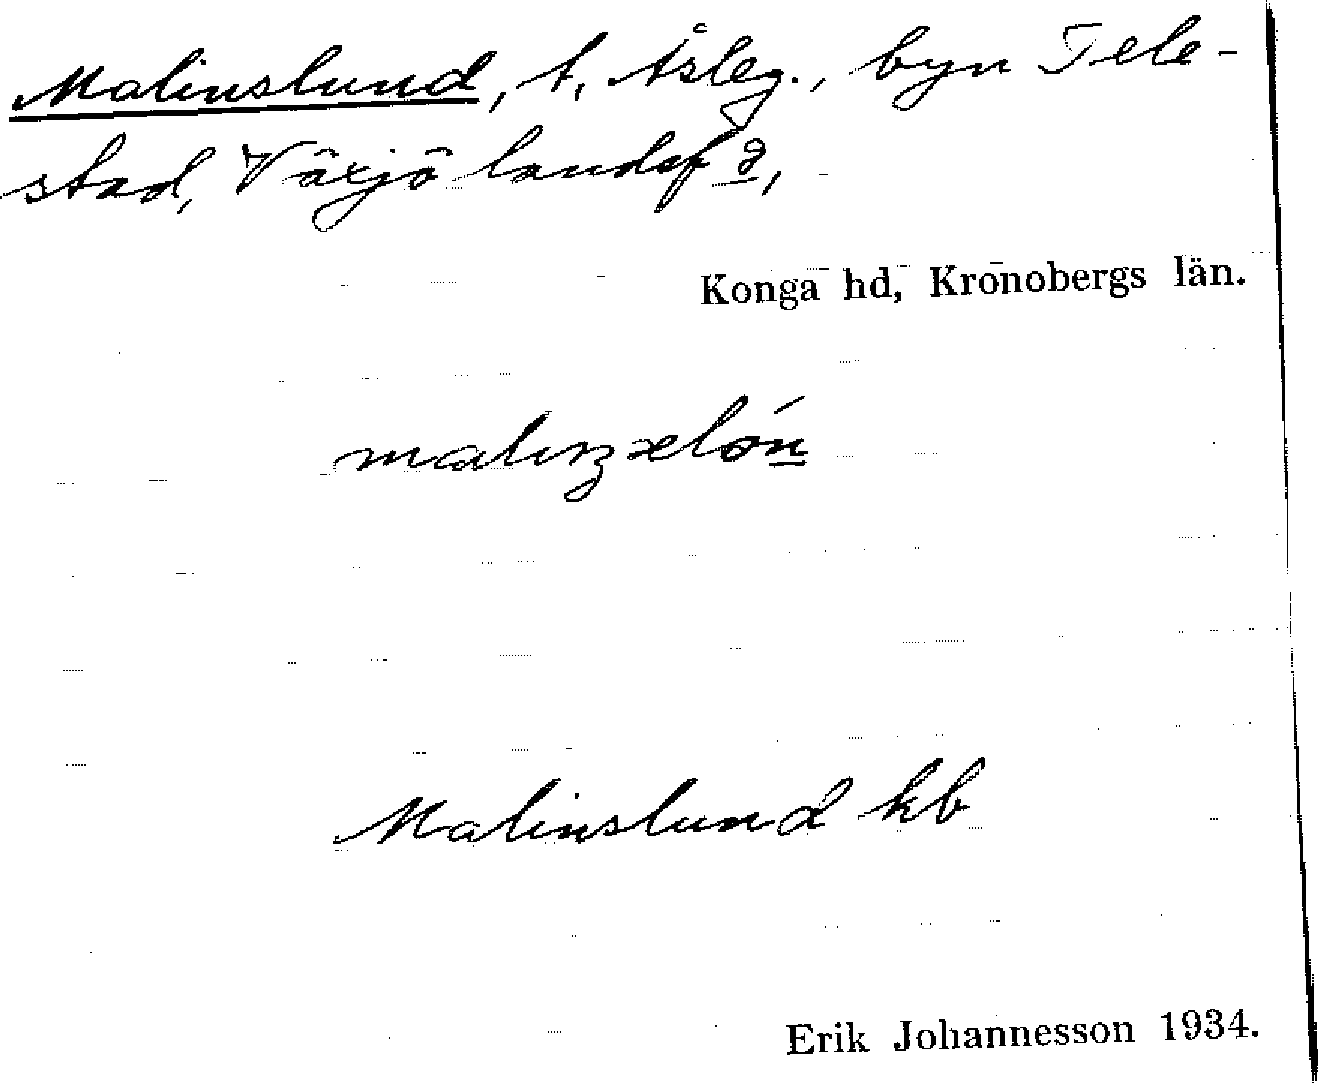 Malinslund, t, Åsleg., byn Tele-
stad, Växjö landsf q,
Konga hd, Kronobergs län.
Malinslund kb
Erik Johannesson 1934.